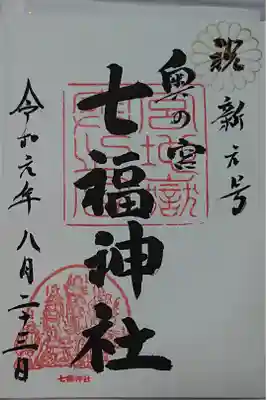 祝
新元号
奥の宮
七福神社
宮地嶽
令和元年八月二十三日
七福神社